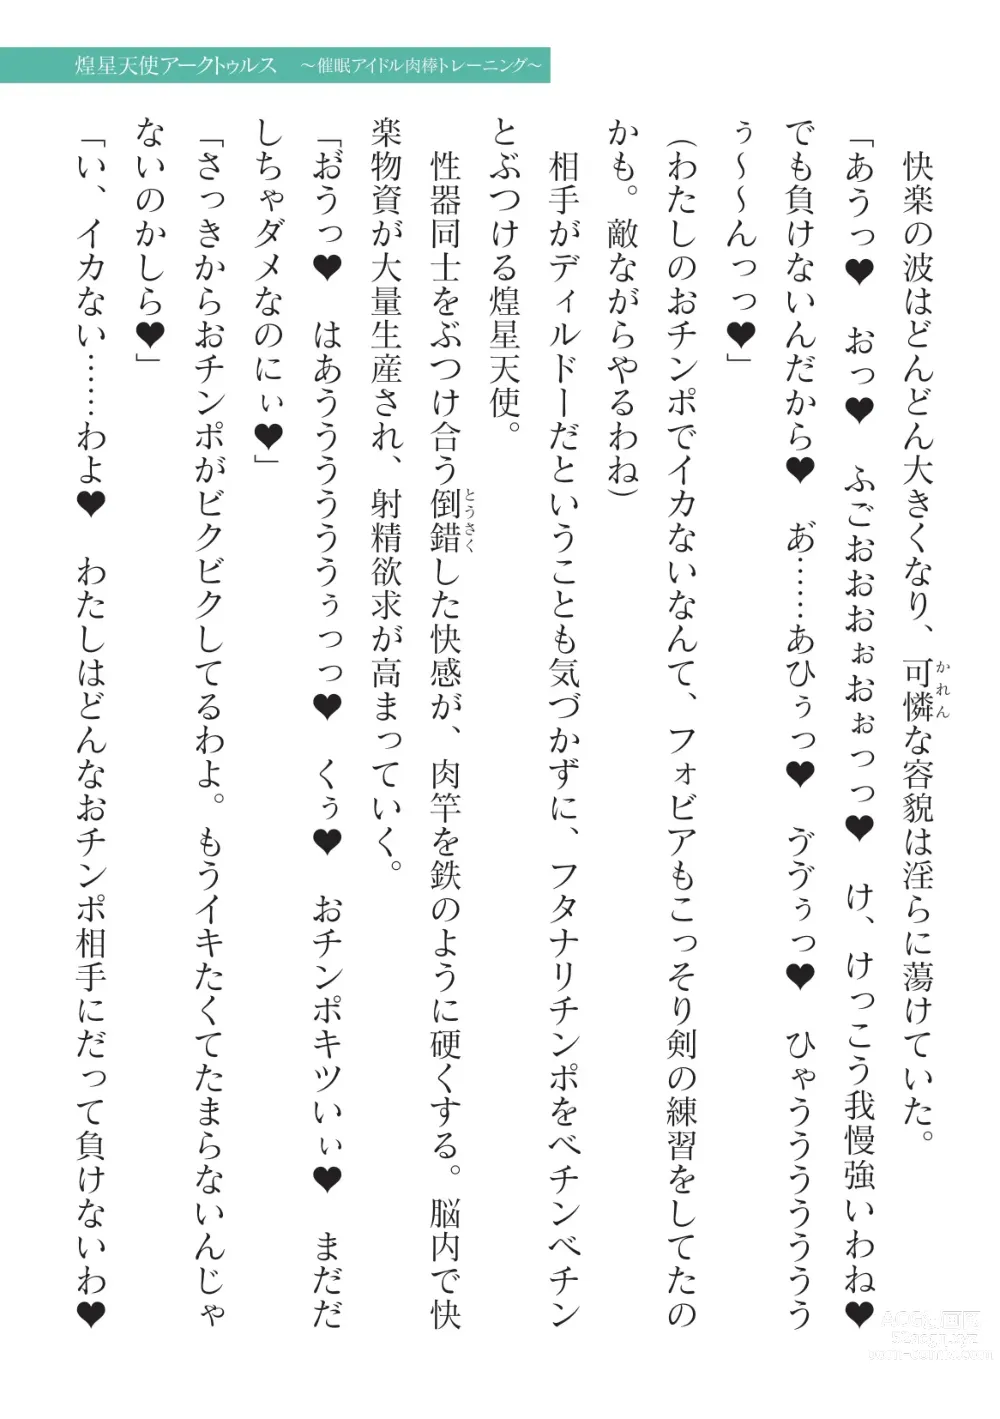 煌星天使アークトゥルス　～催眠アイドル肉棒トレーニング～
　快楽の波はどんどん大きくなり、可憐な容貌は淫らに蕩けていた。
かれん
「あうっ♥　おっ♥　ふごおおおぉおぉっっ♥　け、けっこう我慢強いわね♥
でも負けないんだから♥　あ゙……あひぅっ♥　ゔゔぅっ♥　ひゃうううううう
ぅ～～んっっ♥」
（わたしのおチンポでイカないなんて、フォビアもこっそり剣の練習をしてたの
かも。敵ながらやるわね）
　相手がディルドーだということも気づかずに、フタナリチンポをベチンベチン
とぶつける煌星天使。
　性器同士をぶつけ合う倒錯した快感が、肉竿を鉄のように硬くする。脳内で快
とうさく
楽物資が大量生産され、射精欲求が高まっていく。
「お゙うっ♥　はあううううううぅっっ♥　くぅ♥　おチンポキツいぃ♥　まだだ
しちゃダメなのにぃ♥」
「さっきからおチンポがビクビクしてるわよ。もうイキたくてたまらないんじゃ
ないのかしら♥」
「い、イカない……わよ♥　わたしはどんなおチンポ相手にだって負けないわ♥